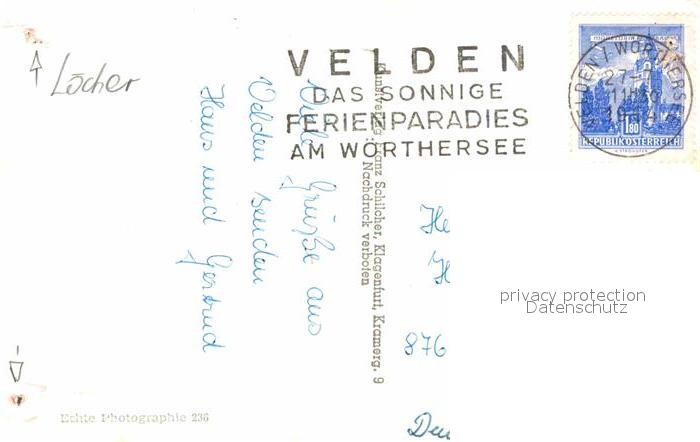 Löcher
VELDEN
DAS SONNIGE
FERIENPARADIES
AM WÖRTHERSEE
VELDEN / WÖRTHERSEE
27-7
1964
1.80
REPUBLIK ÖSTERREICH
Viele Grüße aus
Velden senden
Hans und Gertrud
Kunstverlag Franz Schilcher, Klagenfurt, Kramerg. 9
Nachdruck verboten
He
H
876
Den
privacy protection
Datenschutz
Echte Photographie 236